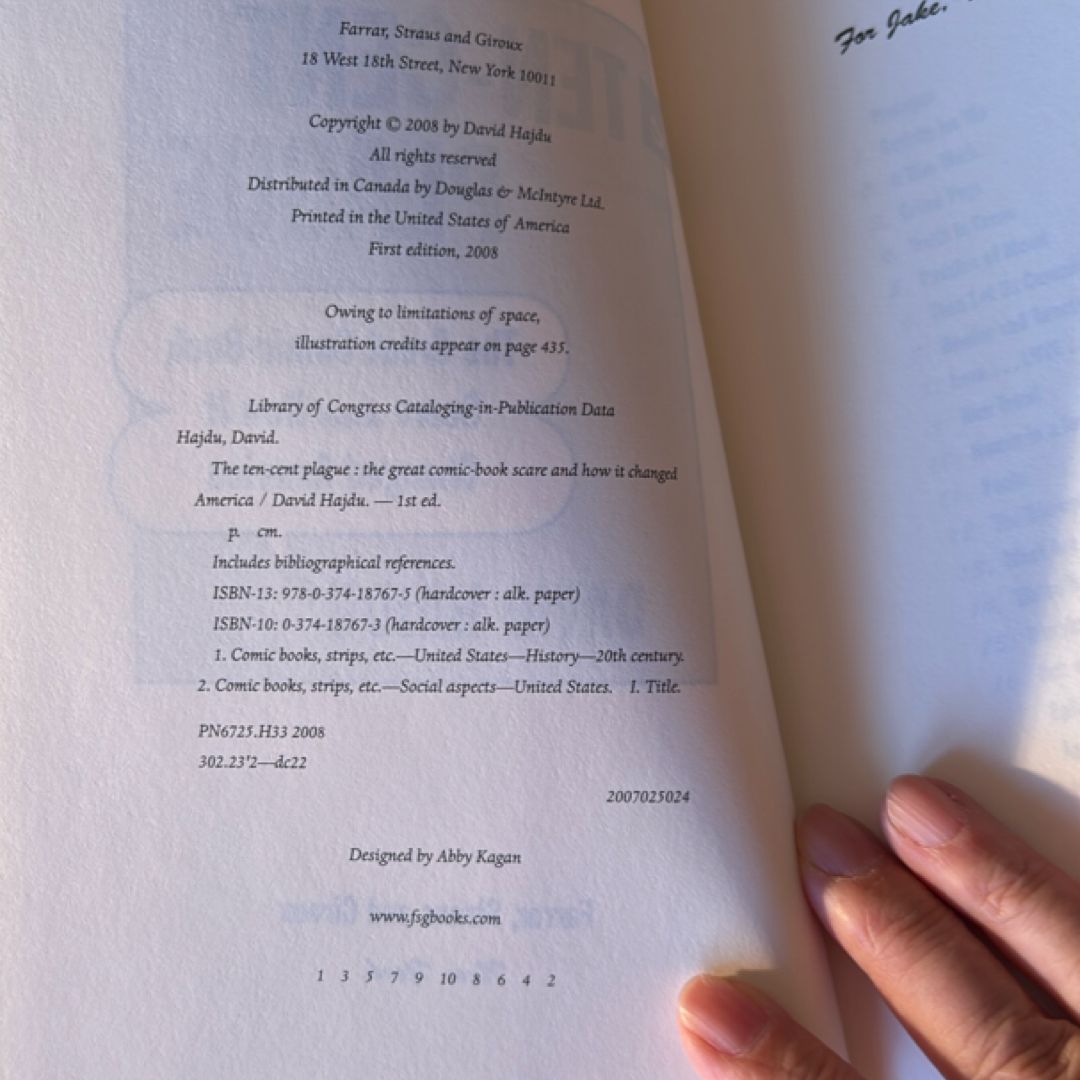 Farrar, Straus and Giroux
18 West 18th Street, New York 10011
Copyright © 2008 by David Hajdu
All rights reserved
Distributed in Canada by Douglas & McIntyre Ltd.
Printed in the United States of America
First edition, 2008
Owing to limitations of space,
illustration credits appear on page 435.
Library of Congress Cataloging-in-Publication Data
Hajdu, David.
The ten-cent plague : the great comic-book scare and how it changed
America / David Hajdu. — 1st ed.
p. cm.
Includes bibliographical references.
ISBN-13: 978-0-374-18767-5 (hardcover : alk. paper)
ISBN-10: 0-374-18767-3 (hardcover : alk. paper)
1. Comic books, strips, etc.—United States—History—20th century.
2. Comic books, strips, etc.—Social aspects—United States. I. Title.
PN6725.H33 2008
302.23'2—dc22
2007025024
Designed by Abby Kagan
www.fsgbooks.com
1 3 5 7 9 10 8 6 4 2
For Jake,